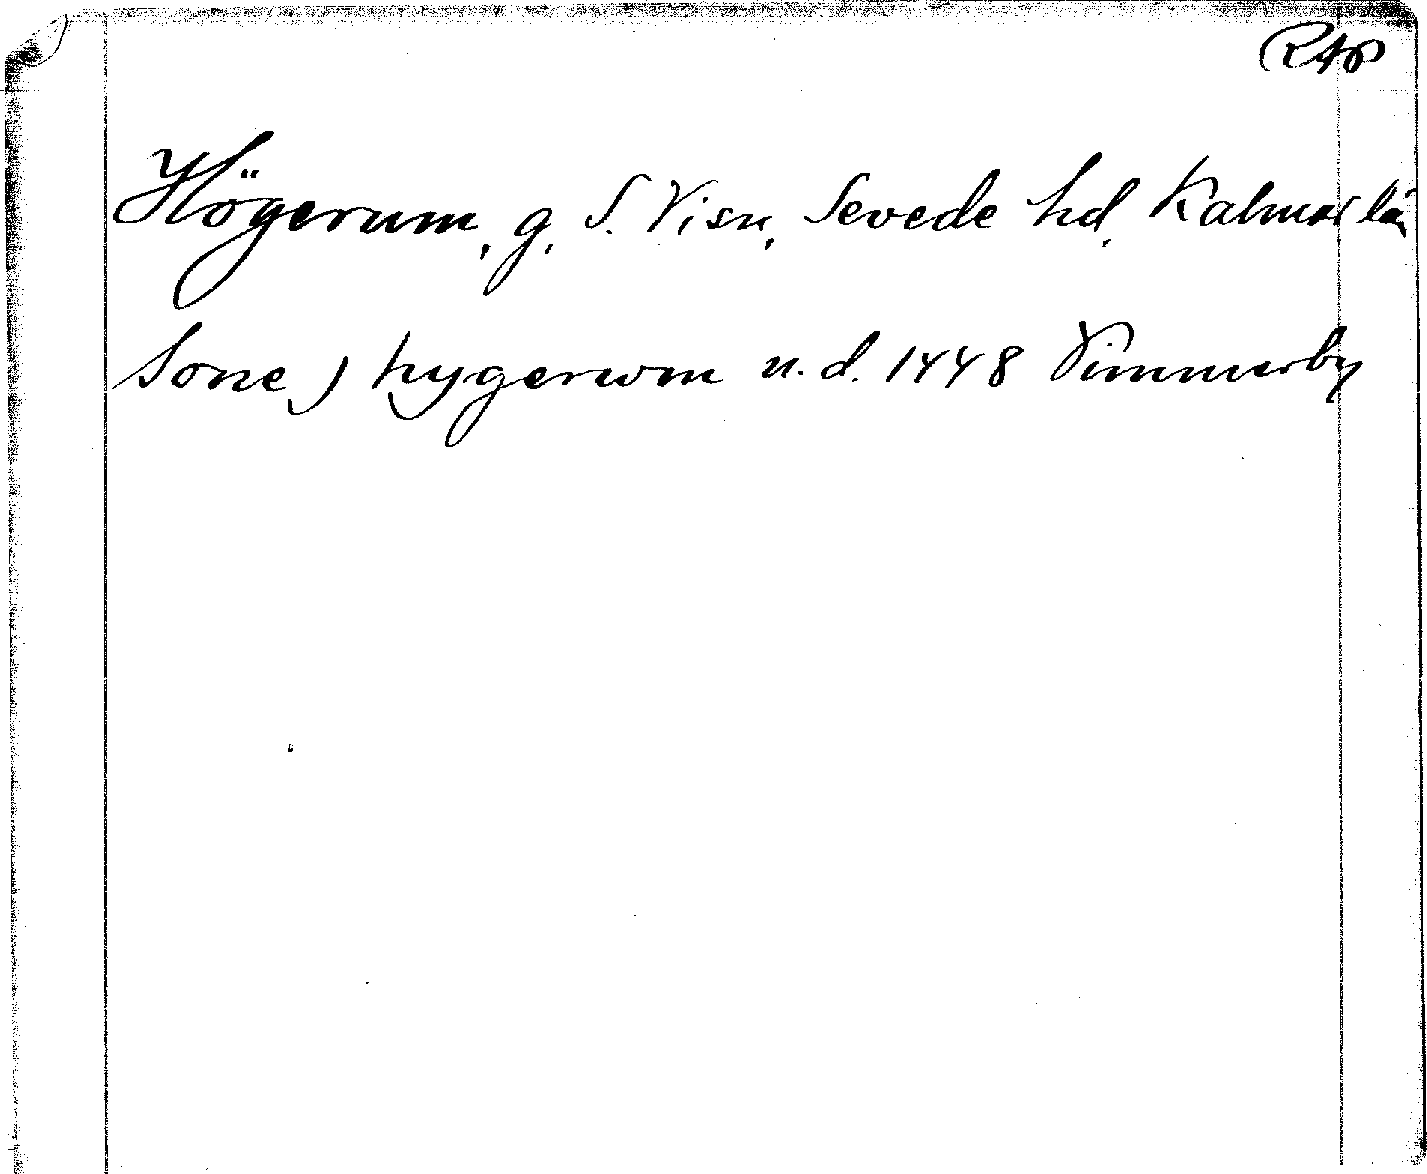 RAp
Högerum, g. S. Visn, Sevede hd, Kalmar län
Sone ) hygerwm u. d. 1448 Vimmerby